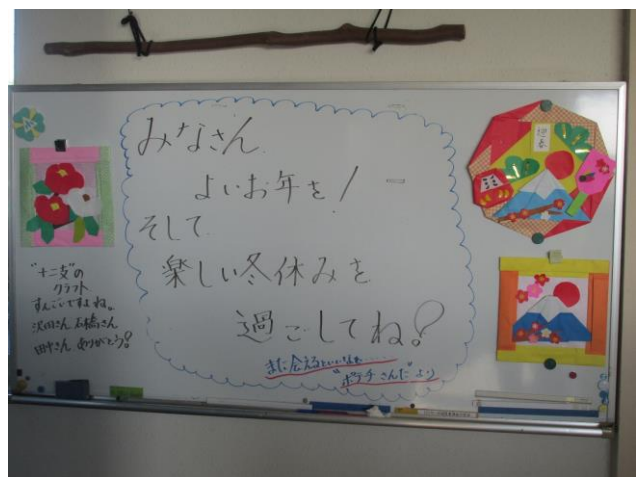 みなさん
よいお年を!
そして
楽しい冬休みを
過ごしてね!
また会えるといいなぁ……
"ポテチさんだ"より
"十二支"の
クラフト
すんごいですよね。
沢田さん 石橋さん
田中さん ありがとう!
迎春